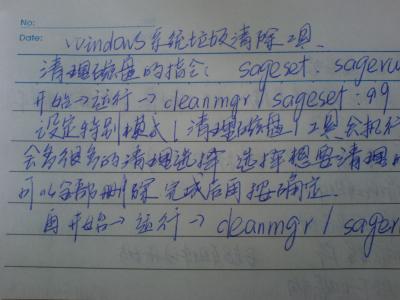 No:
Date:
windows系统垃圾清除工具.
清理磁盘的指令: sageset. sageru
开始→运行→cleanmgr / sageset:99
设定特别模式 / 清理磁盘 / 工具会执行
会多很多的清理选择 选择想要清理
可以全部删除 完成后再按确定.
再开始→运行→cleanmgr / sager